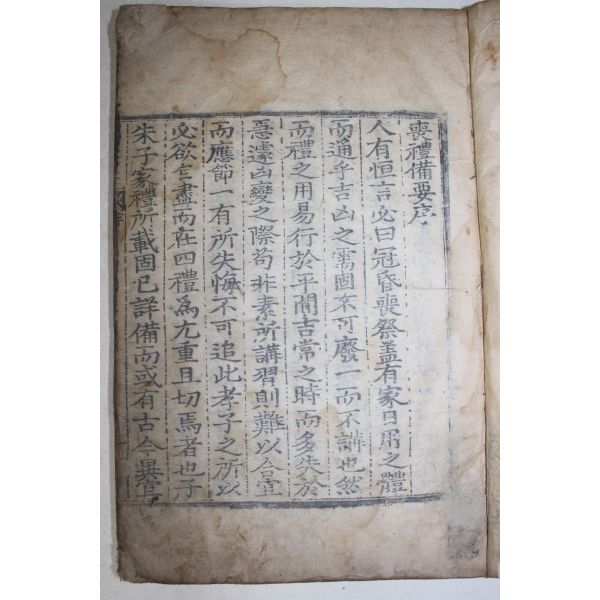 喪禮備要序
人有恒言必曰冠昏喪祭盖有家日用之體
而通乎吉凶之需固不可廢一而不講也然
而禮之用易行於平閒吉常之時而多失於
急遽凶變之際苟非素所講習則難以合宜
而應節一有所失悔不可追此孝子之所以
必欲自盡而在四禮為尤重且切焉者也子
朱子家禮所載固已詳備而或有古今異宜